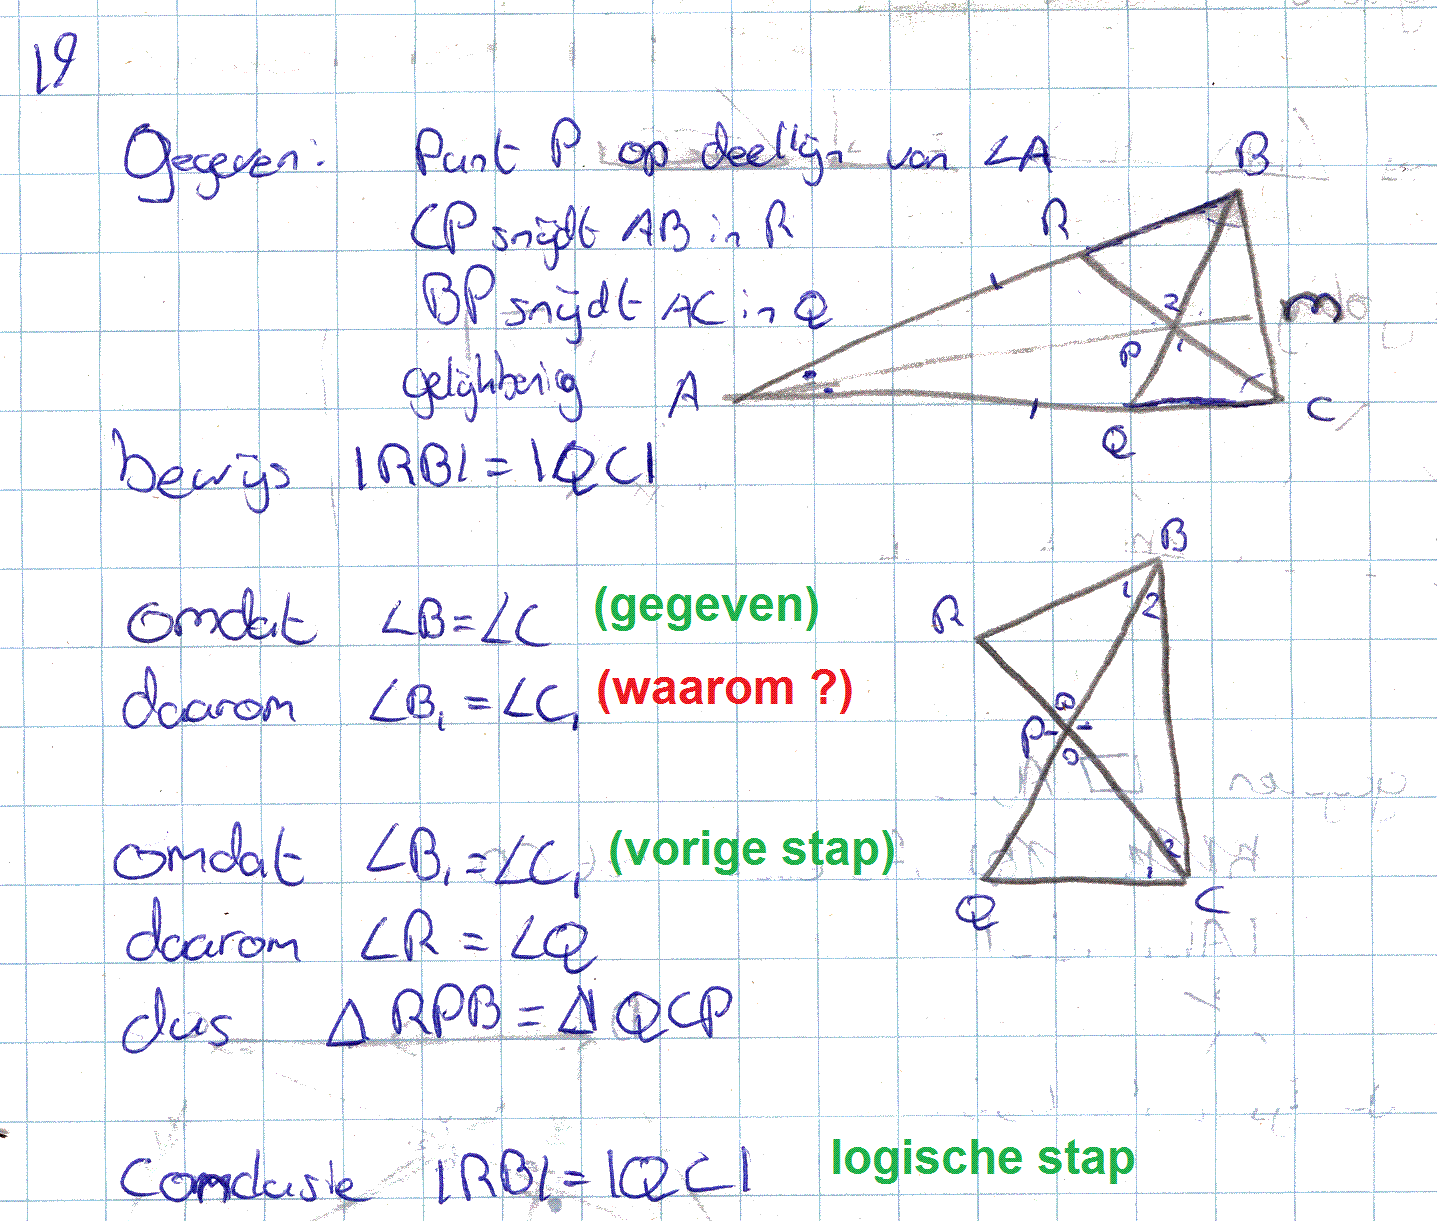 19
Gegeven: Punt P op deellijn van ∠A
CP snijdt AB in R
BP snijdt AC in Q
gelijkbenig
bewijs |RB| = |QC|
B
R
2
M
P
1
A
Q
C
omdat ∠B = ∠C (gegeven)
daarom ∠B₁ = ∠C₁ (waarom ?)
B
1 2
R
P
2
1
Q
C
omdat ∠B₁ = ∠C₁ (vorige stap)
daarom ∠R = ∠Q
dus Δ RPB = Δ QCP
Conclusie |RB| = |QC| logische stap